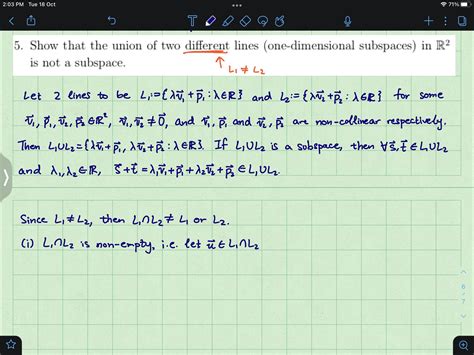 2:03 PM Tue 18 Oct
71%
5. Show that the union of two different lines (one-dimensional subspaces) in ℝ²
is not a subspace.
L₁ ≠ L₂
Let 2 lines to be L₁:={λv⃗₁+p⃗₁:λ∈ℝ} and L₂:={λv⃗₂+p⃗₂:λ∈ℝ} for some
v⃗₁, p⃗₁, v⃗₂, p⃗₂∈ℝ², v⃗₁, v⃗₂ ≠ 0⃗, and v⃗₁, p⃗₁ and v⃗₂, p⃗₂ are non-collinear respectively.
Then L₁∪L₂={λv⃗₁+p⃗₁, λv⃗₂+p⃗₂:λ∈ℝ}. If L₁∪L₂ is a subspace, then ∀s⃗,t⃗∈L₁∪L₂
and λ₁,λ₂∈ℝ, s⃗+t⃗=λ₁v⃗₁+p⃗₁+λ₂v⃗₂+p⃗₂∈L₁∪L₂.
Since L₁≠L₂, then L₁∩L₂≠L₁ or L₂.
(i) L₁∩L₂ is non-empty, i.e. let u⃗∈L₁∩L₂
6
/
7